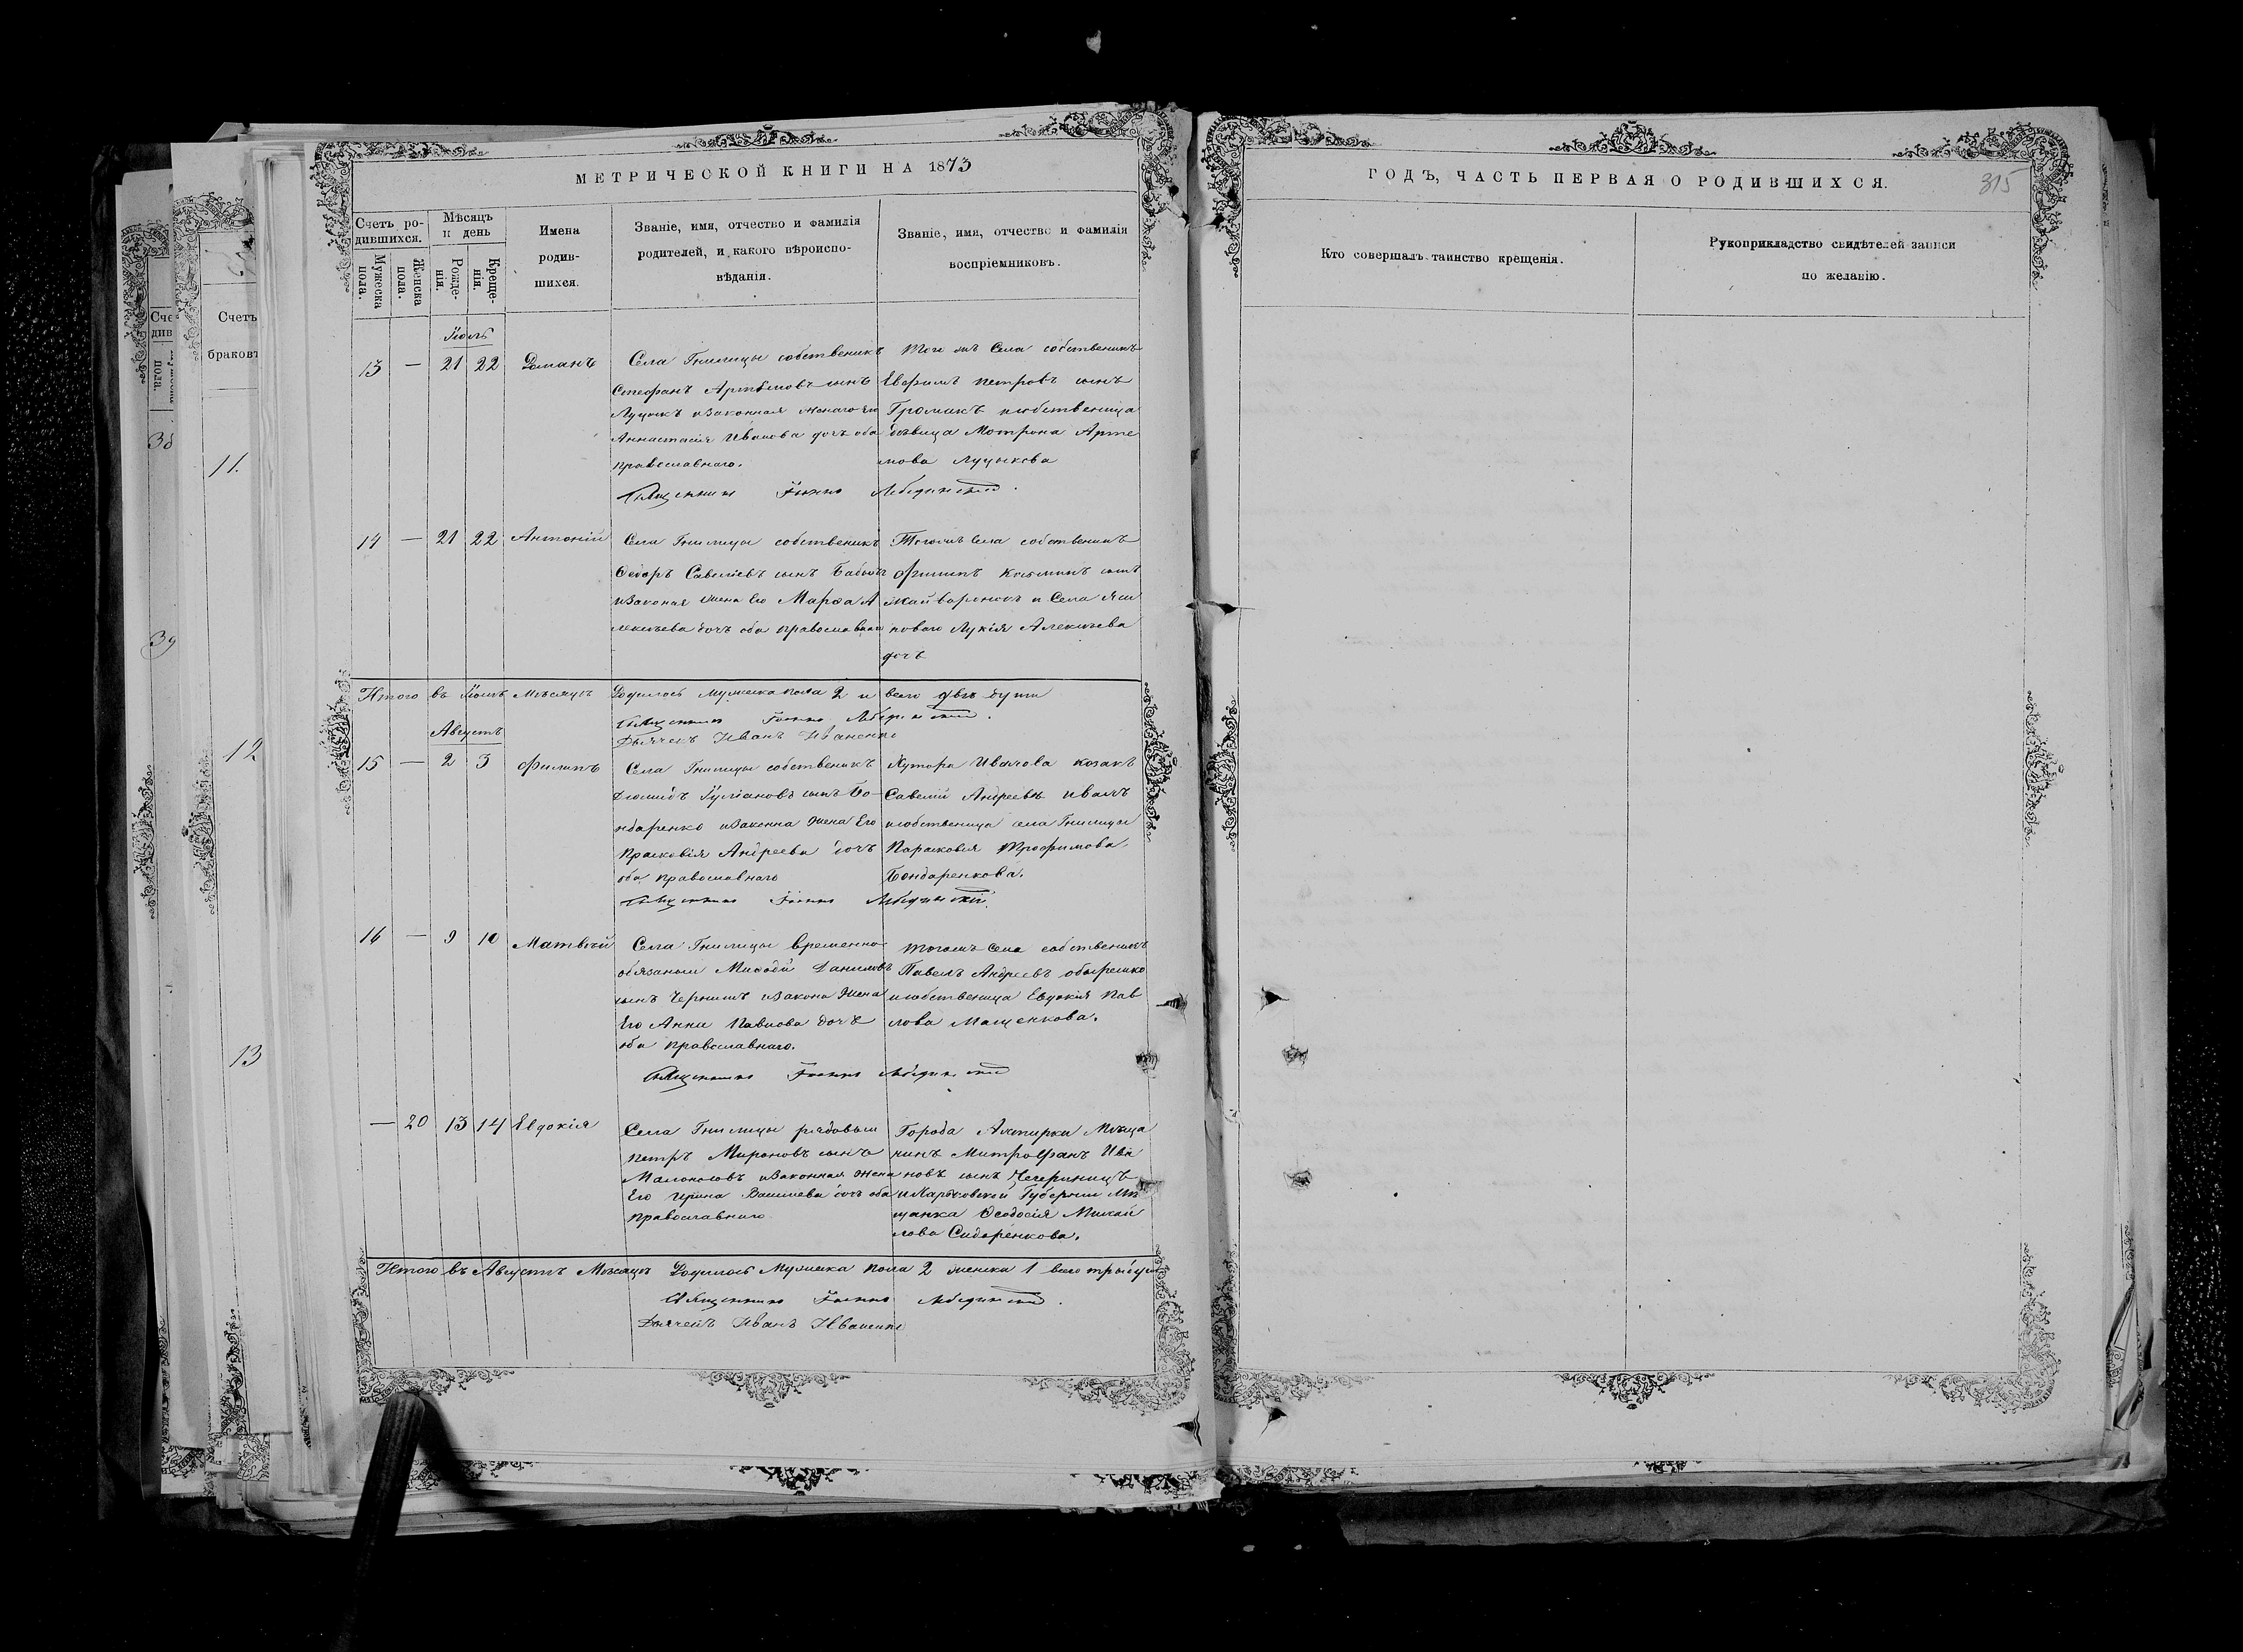 МЕТРИЧЕСКОЙ КНИГИ НА 1873
Счетъ ро-
дившихся.
Мужеска пола.
Женска пола.
Мѣсяцъ
и день
Рожде-
нія.
Креще-
нія.
Имена
родив-
шихся.
Званіе, имя, отчество и фамилія
родителей, и какого вѣроиспо-
вѣданія.
Званіе, имя, отчество и фамилія
воспріемниковъ.
Іюль
13 — 21 22 Романъ
Села Гнилицы собственикъ
Стефанъ Артемовъ сынъ
Луцыкъ изаконная жена его
Аннастасія Иванова дочь оба
православнаго.
Того жъ Села собственикъ
Евфимъ Петровъ сынъ
Громакъ исобственица
дѣвица Мотрона Арте
мова Луцыкова
Священникъ Іоаннъ Лебединскій.
14 — 21 22 Антоній
Села Гнилицы собственикъ
Ѳедоръ Савеліевъ сынъ
изаконая жена Его Марѳа А
лексѣева дочь оба православнаго
Тогожъ Села собственикъ
Филипъ Козминъ сынъ
Жайворонокъ и Села Яси
новаго Лукія Алексѣева
дочь
Итого въ Іюлѣ мѣсяцѣ Родилось мужеска пола 2 и всего двѣ души
Священникъ Іоаннъ Лебединскій.
Дьячекъ Иванъ Иваненко
Августъ
15 — 2 3 Филипъ
Села Гнилицы собственикъ
Діомидъ Іуліановъ сынъ Бо-
ндаренко изаконна жена Его
Прасковія Андреева дочь
оба православнаго
Хутора Иванова козакъ
Савелій Андреевъ
исобственица села Гнилицы
Парасковія Трофимова
Бондаренкова.
Священникъ Іоаннъ Лебединскій.
16 — 9 10 Матвѣй
Села Гнилицы временно
обязаный Миѳодій Даниловъ
сынъ изакона жена
Его Анна Павлова дочь
оба православнаго.
Тогожъ Села собственикъ
Павелъ Андреевъ
исобственица Евдокія Пав
лова Мащенкова.
Священникъ Іоаннъ Лебединскій
— 20 13 14 Евдокія
Села Гнилицы рядовый
Петръ Мироновъ сынъ
изаконная жена
Его Ирина Василіева дочь оба
православнаго
Города Ахтирки Мѣща
нинъ Митрофанъ Ива
новъ сынъ
иХарьковской Губерніи Мѣ
щанка Ѳеодосія Михай
лова Сидоренкова.
Итого въ Августѣ Мѣсяцѣ Родилось Мужеска пола 2 женска 1 всего три души
Священникъ Іоаннъ Лебединскій.
Дьячекъ Иванъ Иваненко
ГОДЪ, ЧАСТЬ ПЕРВАЯ О РОДИВШИХСЯ.
315
Кто совершалъ таинство крещенія.
Рукоприкладство свидѣтелей записи
по желанію.
Счетъ
браковъ
11.
12
13
38
39